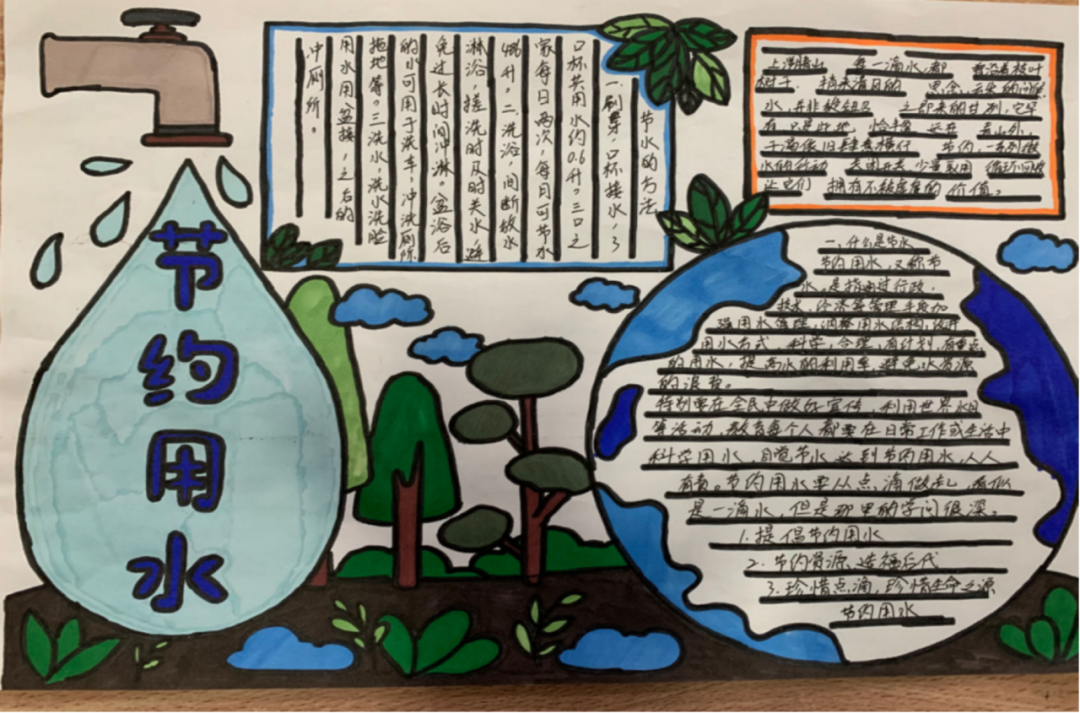 节约用水
节水的方法
一.刷牙,口杯接水,3
口杯共用水约0.6升。三口之
家每日两次,每日可节水
486升。二.洗浴,间断放水
淋浴,搓洗时及时关水,避
免过长时间冲淋。盆浴后
的水可用于洗车,冲洗厕所
拖地等。三洗水,洗水洗脸
用水用盆接,之后的
冲厕所。
每一滴水,都
水,并非
只是此地,恰
节约,一系列
水的行动
让它们 拥有不被 的价值。
一,什么是节水
节约用水,又称节
水,是指通过行政,
技术,经济等管理手段加
强用水管理,调整用水结构,
用水方式,科学,合理,有计划,有重点
的用水,提高水的利用率,避免水资源
的浪费。
特别要在全民中做好宣传,利用世界水日
等活动,教育每个人都要在日常工作或生活中
科学用水,自觉节水,达到节约用水,人人
有责。节约用水要从点滴做起,看似
是一滴水,但是那里的学问很深。
1.提倡节约用水
2.节约资源 造福后代
3.珍惜点滴,珍惜生命之源
节约用水